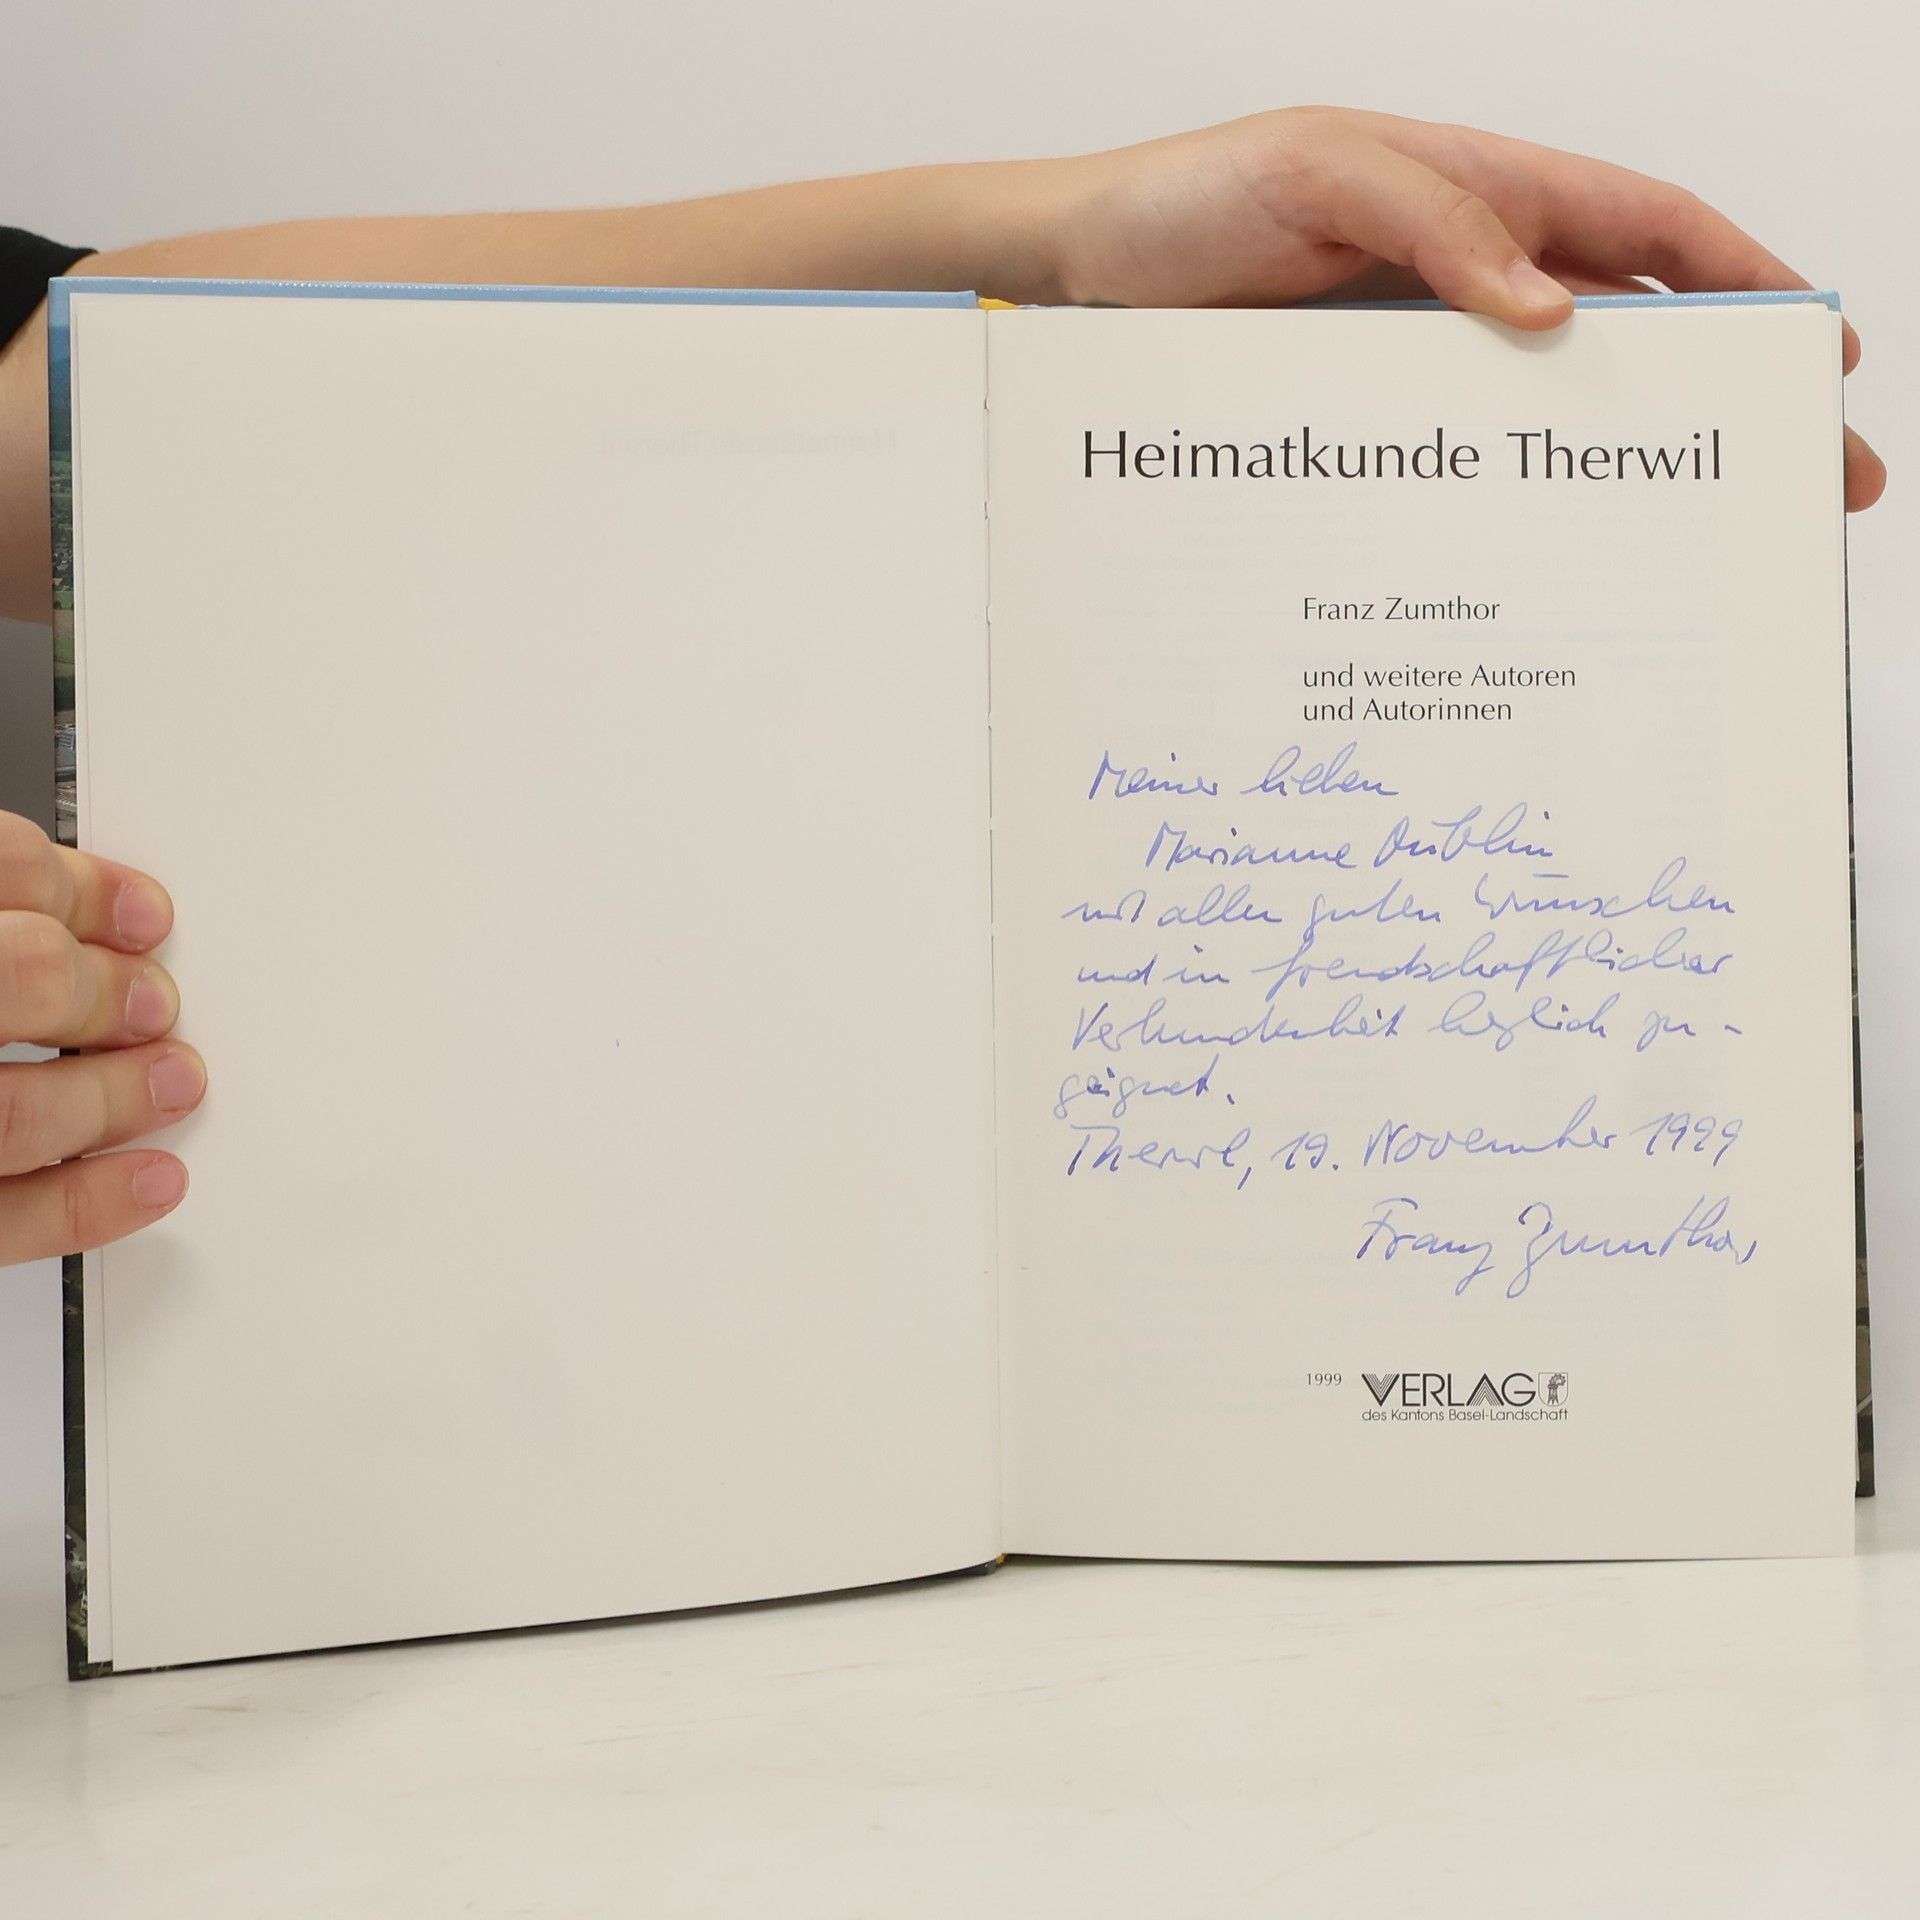 Heimatkunde Therwil
Franz Zumthor
und weitere Autoren
und Autorinnen
Meiner lieben
Marianne
mit allen guten Wünschen
und in freundschaftlicher
Verbundenheit herzlich zu-
geeignet.
Therwil, 19. November 1999
Franz Zumthor
1999 VERLAG
des Kantons Basel-Landschaft